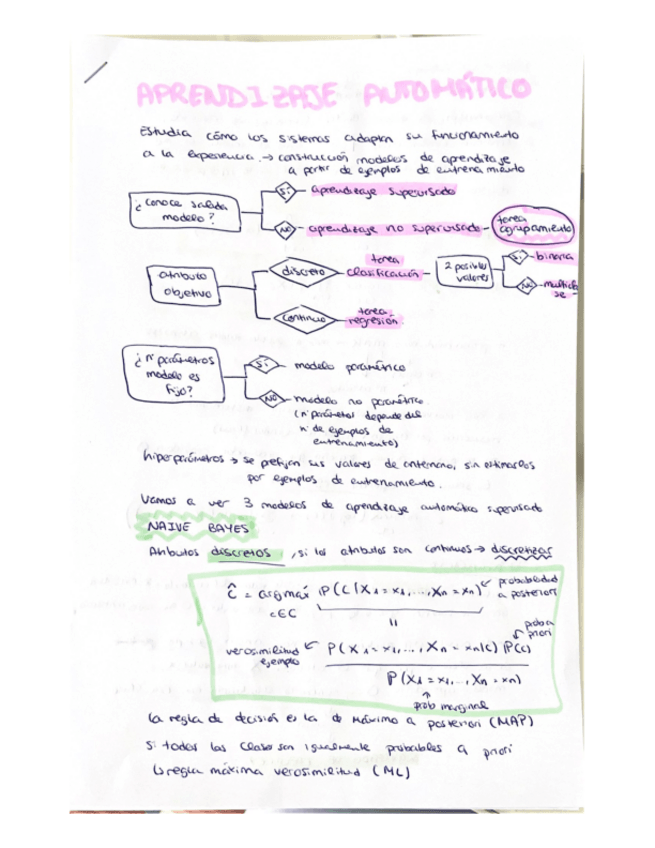 APRENDIZAJE AUTOMÁTICO
Estudia cómo los sistemas adaptan su funcionamiento
a la experiencia → construcción modelos de aprendizaje
a partir de ejemplos de entrenamiento
¿Conoce salida
modelo?
Sí
aprendizaje supervisado
No
aprendizaje no supervisado
tarea
agrupamiento
atributo
objetivo
discreto
tarea
clasificación
2 posibles
valores
Sí
binaria
No
multicla
se
continuo
tarea
regresión
¿nº parámetros
modelo es
fijo?
Sí
modelo paramétrico
No
modelo no paramétrico
(nº parámetros depende del
nº de ejemplos de
entrenamiento)
hiperparámetros → se prefijan sus valores de antemano, sin estimarlos
por ejemplos de entrenamiento.
Vamos a ver 3 modelos de aprendizaje automático supervisado
NAIVE BAYES
Atributos discretos, si los atributos son continuos → discretizar
ĉ = argmáx P(C|X₁=x₁,...,Xn=xn)
c∈C
probabilidad
a posteriori
=
verosimilitud
ejemplo
P(X₁=x₁,...,Xn=xn|c) P(c)
prob a
priori
P(X₁=x₁,..,Xn=xn)
prob marginal
La regla de decisión es la de Máximo a posteriori (MAP)
Si todas las clases son igualmente probables a priori
↳ regla máxima verosimilitud (ML)